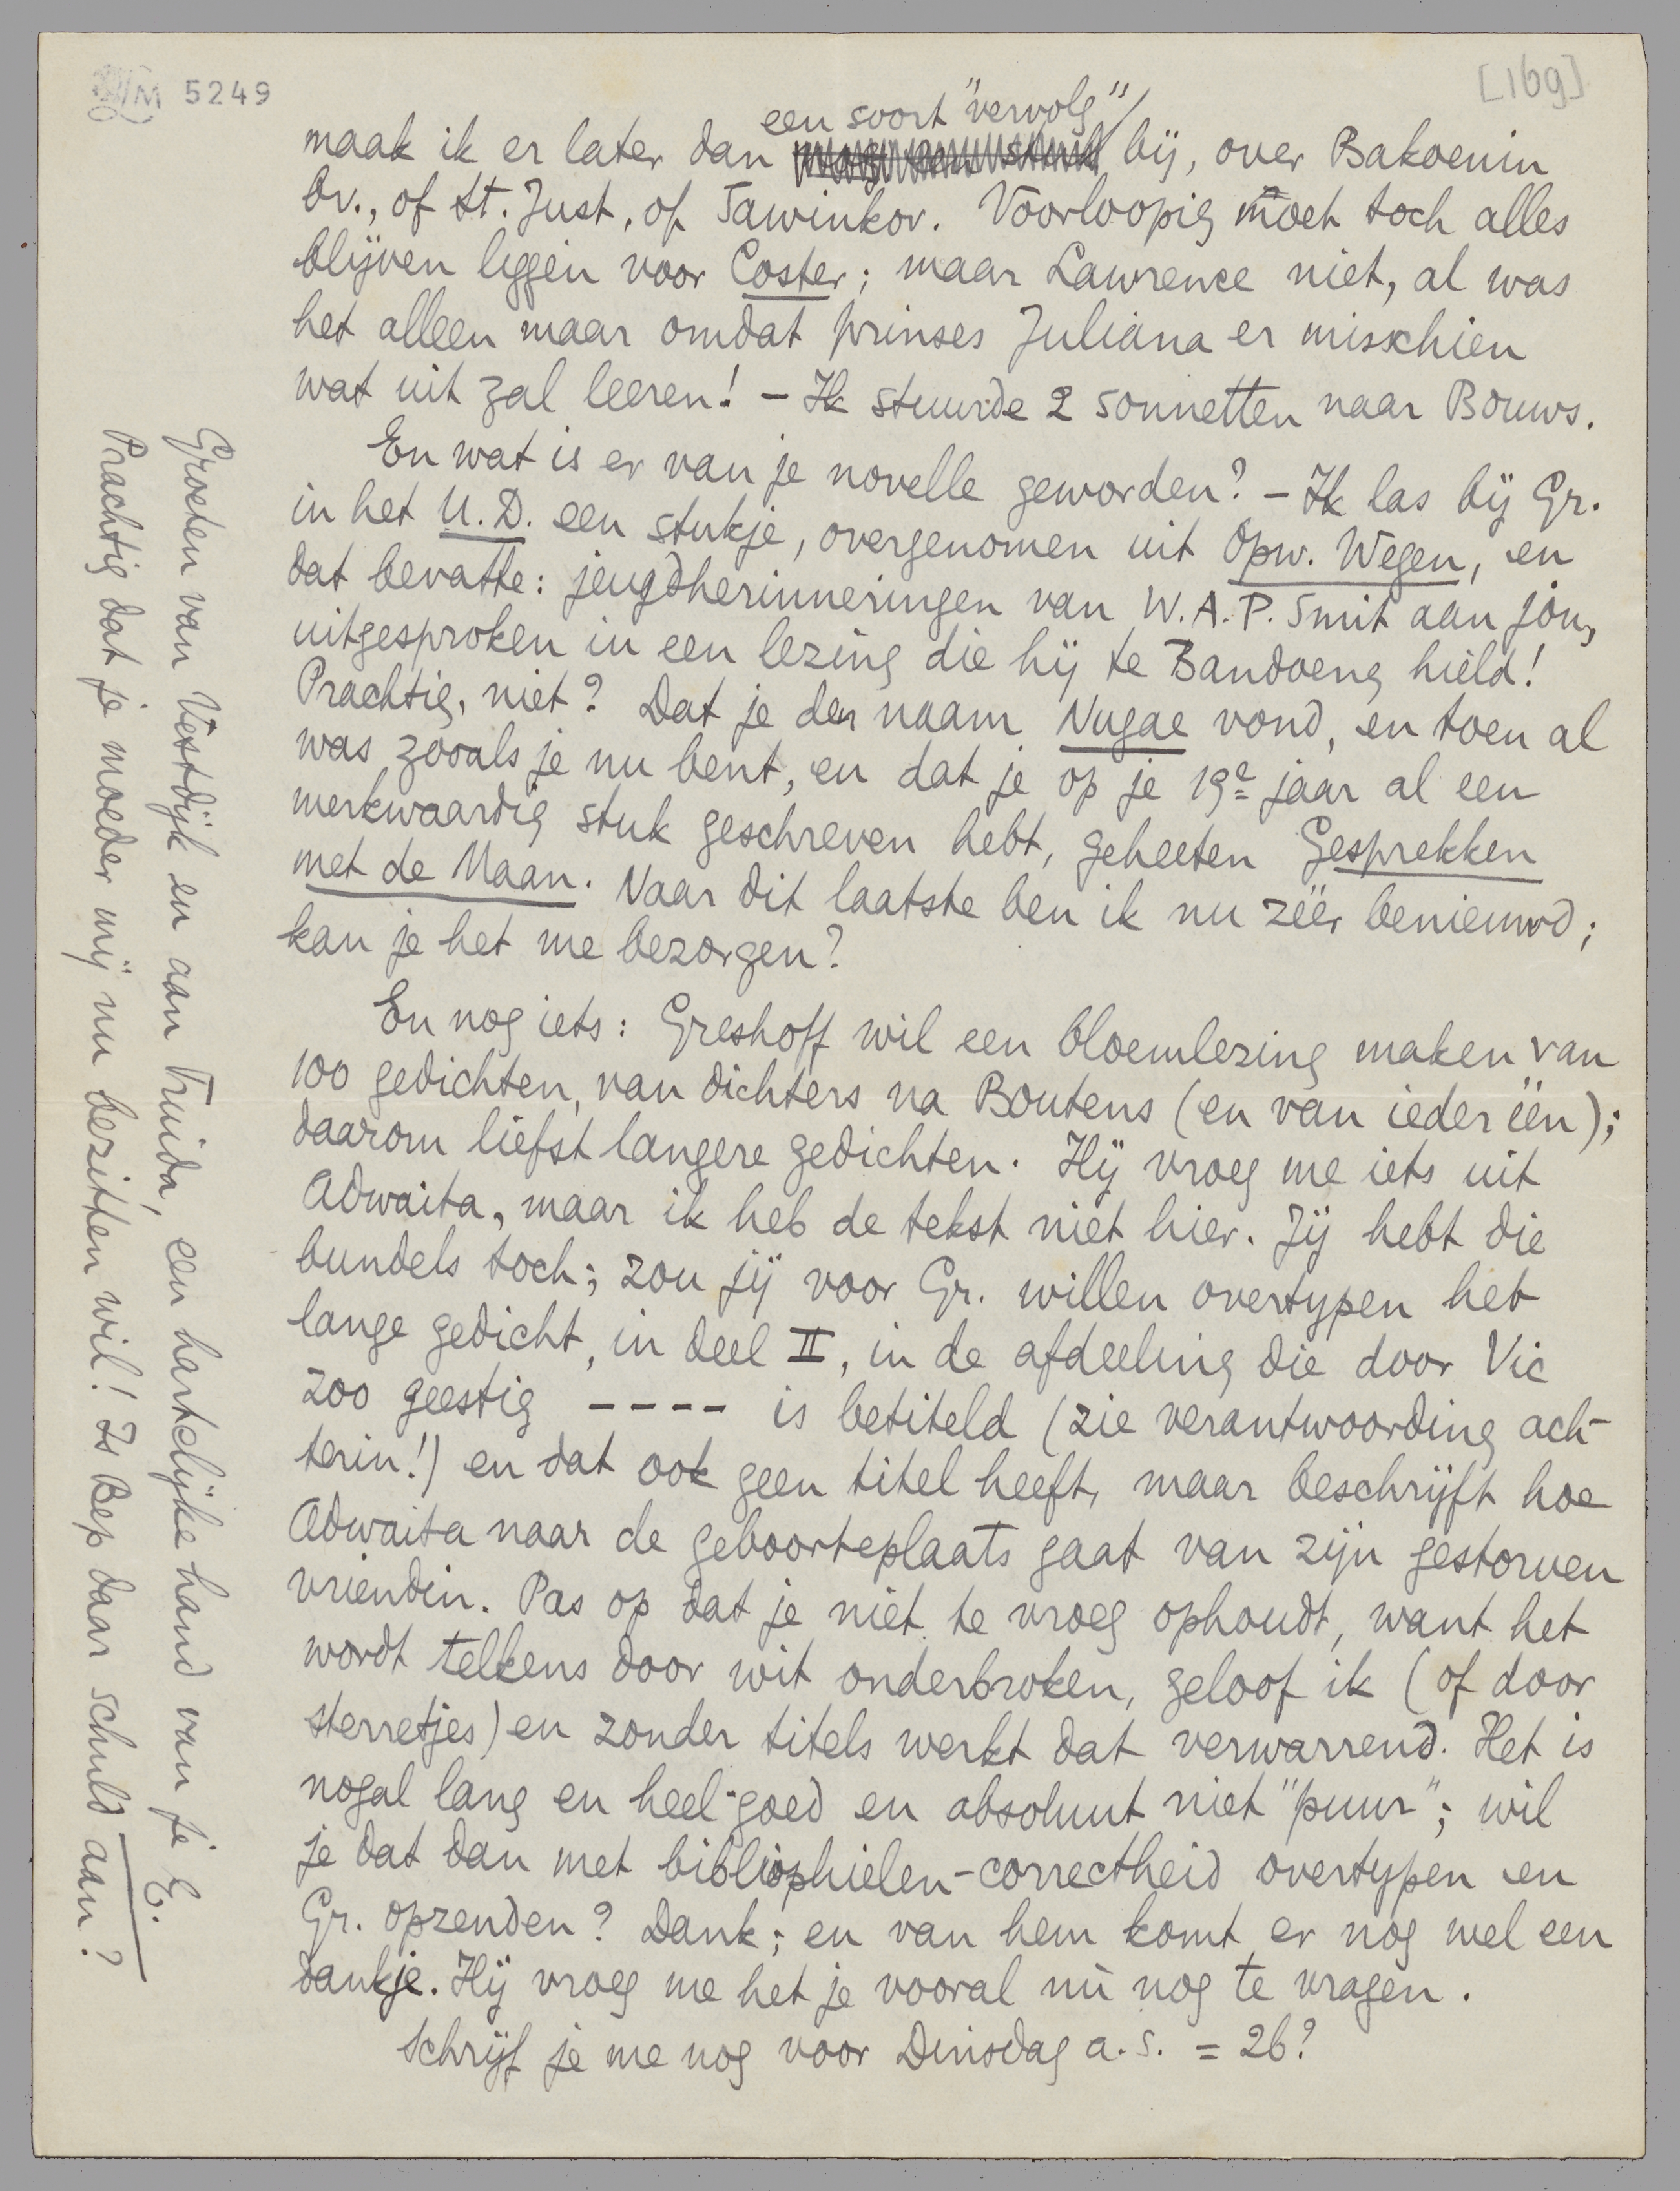 M 5249
[169]
een soort "vervolg"
maak ik er later dan bij, over Bakoenin
bv., of St. Just, of Sawinkov. Voorloopig moet toch alles
blijven liggen voor Coster; maar Lawrence niet, al was
het alleen maar omdat prinses Juliana er misschien
wat uit zal leeren! – Ik stuurde 2 sonnetten naar Bouws.
En wat is er van je novelle geworden? – Ik las bij Gr.
in het U.D. een stukje, overgenomen uit Opw. Wegen, en
dat bevatte: jeugdherinneringen van W.A.P. Smit aan jou,
uitgesproken in een lezing die hij te Bandoeng hield!
Prachtig, niet? Dat je den naam Nugae vond, en toen al
was zooals je nu bent, en dat je op je 19e jaar al een
merkwaardig stuk geschreven hebt, geheeten Gesprekken
met de Maan. Naar dit laatste ben ik nu zéér benieuwd;
kan je het me bezorgen?
En nog iets: Greshoff wil een bloemlezing maken van
100 gedichten, van dichters na Boutens (en van ieder één);
daarom liefst langere gedichten. Hij vroeg me iets uit
Adwaita, maar ik heb de tekst niet hier. Jij hebt die
bundels toch; zou jij voor Gr. willen overtypen het
lange gedicht, in deel II, in de afdeeling die door Vic
zoo geestig ---- is betiteld (zie verantwoording ach-
terin!) en dat ook geen titel heeft, maar beschrijft hoe
Adwaita naar de geboorteplaats gaat van zijn gestorven
vriendin. Pas op dat je niet te vroeg ophoudt, want het
wordt telkens door wit onderbroken, geloof ik (of door
sterretjes) en zonder titels werkt dat verwarrend. Het is
nogal lang en heel goed en absoluut niet "puur"; wil
je dat dan met bibliophielen-correctheid overtypen en
Gr. opzenden? Dank; en van hem komt er nog wel een
dankje. Hij vroeg me het je vooral nù nog te vragen.
Schrijf je me nog voor Dinsdag a.s. = 26?
Groeten van Vestdijk en aan Truida, een hartelijke hand van je E.
Prachtig dat je moeder mij nu bezitten wil! Is Bep daar schuld aan?